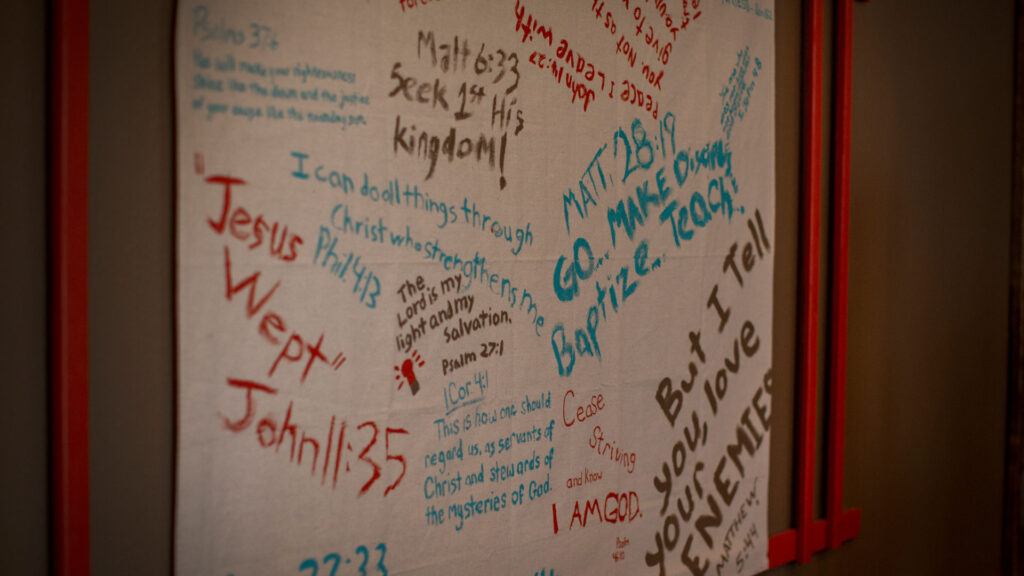 Psalms 37:6
He will make your righteousness
shine like the dawn and the justice
of your cause like the noonday sun
Matt 6:33
Seek 1st His
kingdom!
John 14:27
Peace I Leave with
you Not as th
give to
MATT. 28:19
GO... MAKE Discip
Baptize... Teach!
"Jesus
Wept"
John 11:35
I can do all things through
Christ who strengthens me
Phil 4:13
The
Lord is my
light and my
Salvation.
Psalm 27:1
1 Cor 4:1
This is how one should
regard us, as servants of
Christ and stewards of
the Mysteries of God.
Cease
Striving
and know
I AM GOD.
Psalm
46:10
But I Tell
you, love
your
ENEMIES
MATTHEW
5:44
27:33